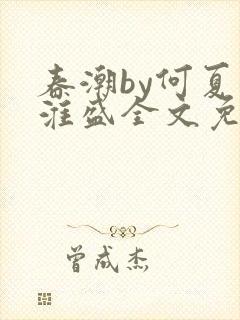 春潮by何夏
淮盛全文免
曾成杰